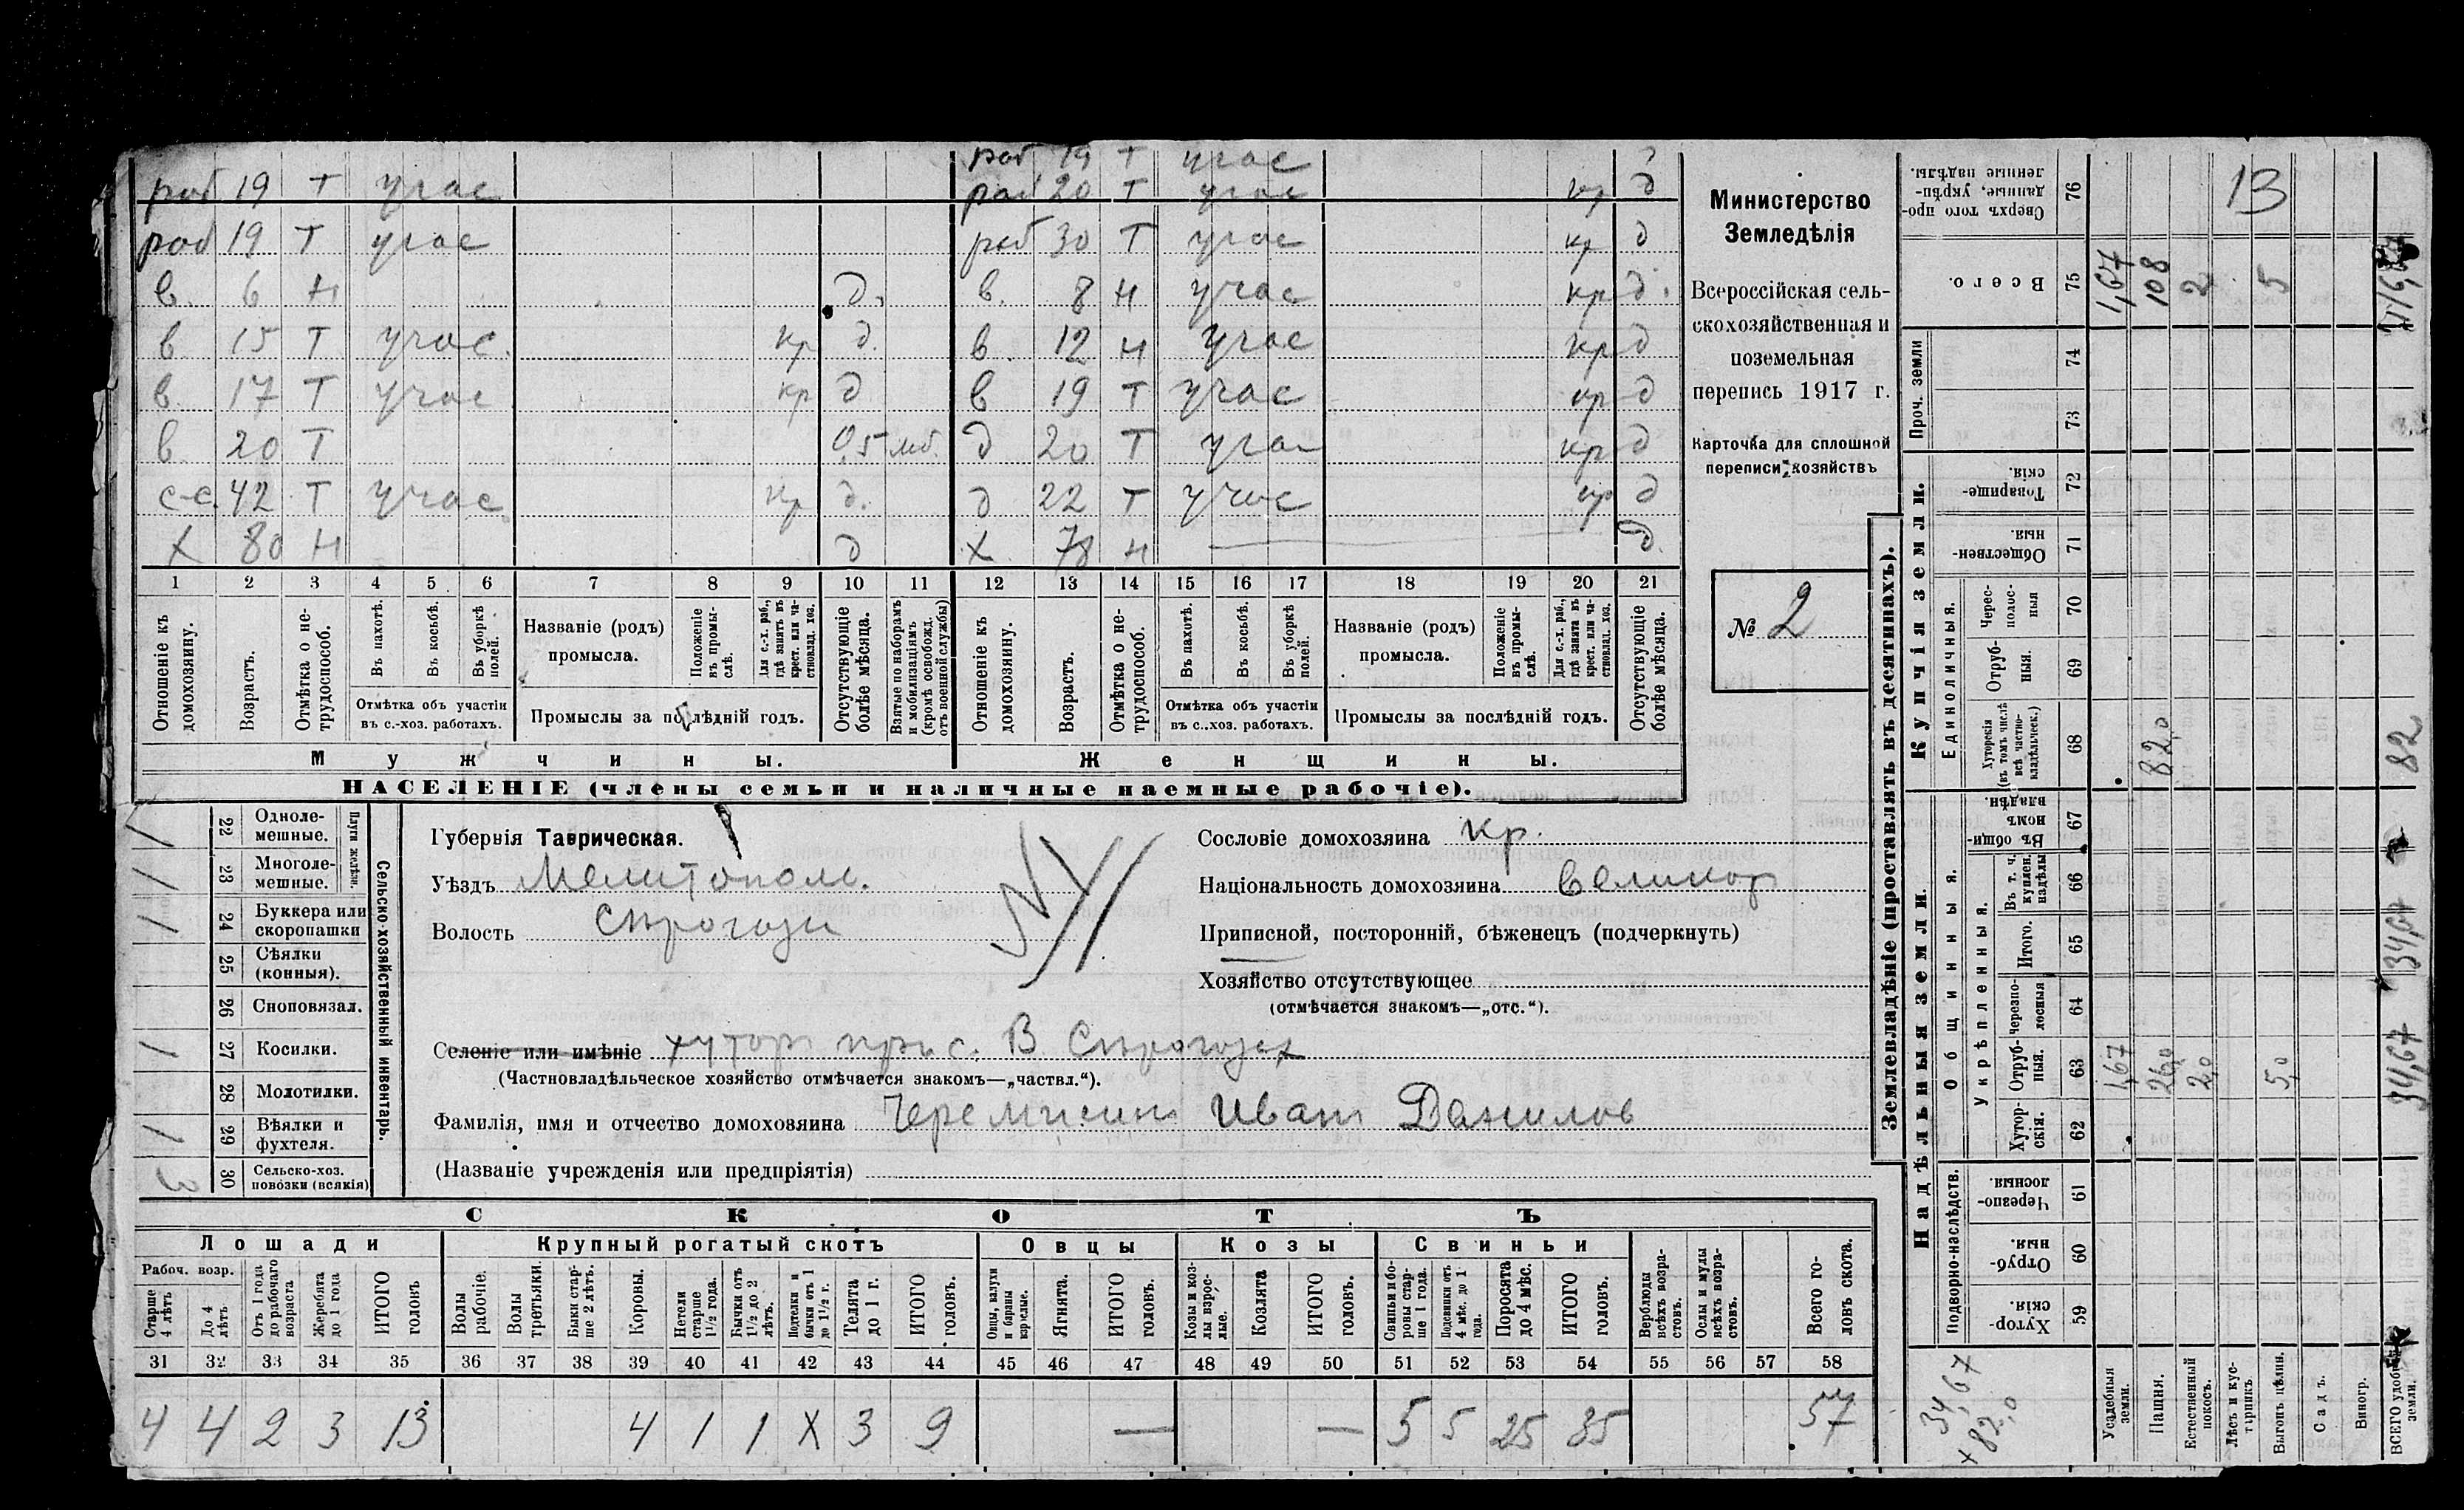 раб 19 Т учас
раб 19 Т учас
в. 6 Н д.
в 15 Т учас. кр д.
в. 17 Т учас кр д
в. 20 Т 0,5 мб.
с-с. 42 Т учас. кр д.
х 80 Н д
раб 19 Т учас
раб 20 Т учас кр д
раб 30 Т учас кр д
в. 8 Н учас кр д.
в. 12 Н учас кр д
в 19 Т учас кр д
д 20 Т учас кр д
д 22 Т учас кр д
х 78 Н д.
1 2 3 4 5 6 7 8 9 10 11 12 13 14 15 16 17 18 19 20 21
Отношеніе къ домохозяину.
Возрастъ.
Отмѣтка о нетрудоспособ.
Въ пахотѣ.
Въ косьбѣ.
Въ уборкѣ полей.
Отмѣтка объ участіи
въ с.-хоз. работахъ.
Названіе (родъ)
промысла.
Положеніе въ промыслѣ.
Для с.-х. раб., гдѣ занятъ въ крест. или частновлад. хоз.
Промыслы за послѣдній годъ.
Отсутствующіе болѣе мѣсяца.
Взятые по наборамъ и мобилизаціямъ (кромѣ освобожд. отъ военной службы)
Отношеніе къ домохозяину.
Возрастъ.
Отмѣтка о нетрудоспособ.
Въ пахотѣ.
Въ косьбѣ.
Въ уборкѣ полей.
Отмѣтка объ участіи
въ с..хоз. работахъ.
Названіе (родъ)
промысла.
Положеніе въ промыслѣ.
Для с.-х. раб., гдѣ занята въ крест. или частновлад. хоз.
Промыслы за послѣдній годъ.
Отсутствующіе болѣе мѣсяца.
Мужчины.
Женщины.
НАСЕЛЕНІЕ (члены семьи и наличные наемные рабочіе).
Министерство
Земледѣлія
Всероссійская сель-
скохозяйственная и
поземельная
перепись 1917 г.
Карточка для сплошной
переписи хозяйствъ
№ 2
Сельско-хозяйственный инвентарь.
Плуги желѣзн.
22 Однолемешные. /
23 Многолемешные. /
24 Буккера или скоропашки /
25 Сѣялки (конныя).
26 Сноповязал.
27 Косилки. /
28 Молотилки.
29 Вѣялки и фухтеля. /
30 Сельско-хоз. повозки (всякія) 3
Губернія Таврическая.
Уѣздъ Мелитопол.
Волость Сѣрогози
Сословіе домохозяина кр.
Національность домохозяина великор
Приписной, посторонній, бѣженецъ (подчеркнуть)
Хозяйство отсутствующее
(отмѣчается знакомъ—„отс.“).
Селеніе или имѣніе хуторъ при с. В. Сѣрогозах
(Частновладѣльческое хозяйство отмѣчается знакомъ—„частвл.“).
Фамилія, имя и отчество домохозяина Черемисинъ Иванъ Данилов
(Названіе учрежденія или предпріятія)
СКОТЪ
Лошади Крупный рогатый скотъ Овцы Козы Свиньи
Рабоч. возр.
Старше 4 лѣтъ
До 4 лѣтъ
Отъ 1 года до рабочаго возраста
Жеребята до 1 года
ИТОГО головъ
Волы рабочіе.
Волы третьяки.
Быки старше 2 лѣтъ.
Коровы.
Нетели старше 1½ года.
Бычки отъ 1½ до 2 лѣтъ.
Подтелки и бычки отъ 1 до 1½ г.
Телята до 1 г.
ИТОГО головъ.
Овцы, валухи и бараны взрослые.
Ягнята.
ИТОГО головъ.
Козы и козлы взрослые.
Козлята
ИТОГО головъ.
Свиньи и боровы старше 1 года.
Подсвинки отъ 4 мѣс. до 1 года.
Поросята до 4 мѣс.
ИТОГО головъ.
Верблюды всѣхъ возрастовъ.
Ослы и мулы всѣхъ возрастовъ.
Всего головъ скота.
31 32 33 34 35 36 37 38 39 40 41 42 43 44 45 46 47 48 49 50 51 52 53 54 55 56 57 58
4 4 2 3 13 4 1 1 X 3 9 — — 5 5 25 35 57
Землевладѣніе (проставлять въ десятинахъ).
Надѣльныя земли.
Купчія земли.
Проч. земли
Подворно-наслѣдств.
Общинныя.
Укрѣпленныя.
Единоличныя.
76 Сверхъ того проданные, укрѣпленные надѣлы. 13
75 Всего. 1,67 108 2 5 116,67
74
73
72 Товарищескія.
71 Общественныя
70 Чересполосныя
69 Отрубныя.
68 Хуторскія (въ томъ числѣ всѣ частновладѣльческ.) 82,0 82
67 Въ общинномъ владѣн.
66 Въ т. ч. куплен. надѣлы
65 Итого. 34,67
64 Черезполосныя
63 Отрубныя. 1,67 26,0 2,0 5,0 34,67
62 Хуторскія.
61 Черезполосныя
60 Отрубныя.
59 Хуторскія.
34,67
+ 82,0
Усадебныя земли.
Пашня.
Естественный покосъ.
Лѣсъ и кустарникъ.
Выгонъ цѣлин.
Садъ.
Виногр.
ВСЕГО удобн. земли.